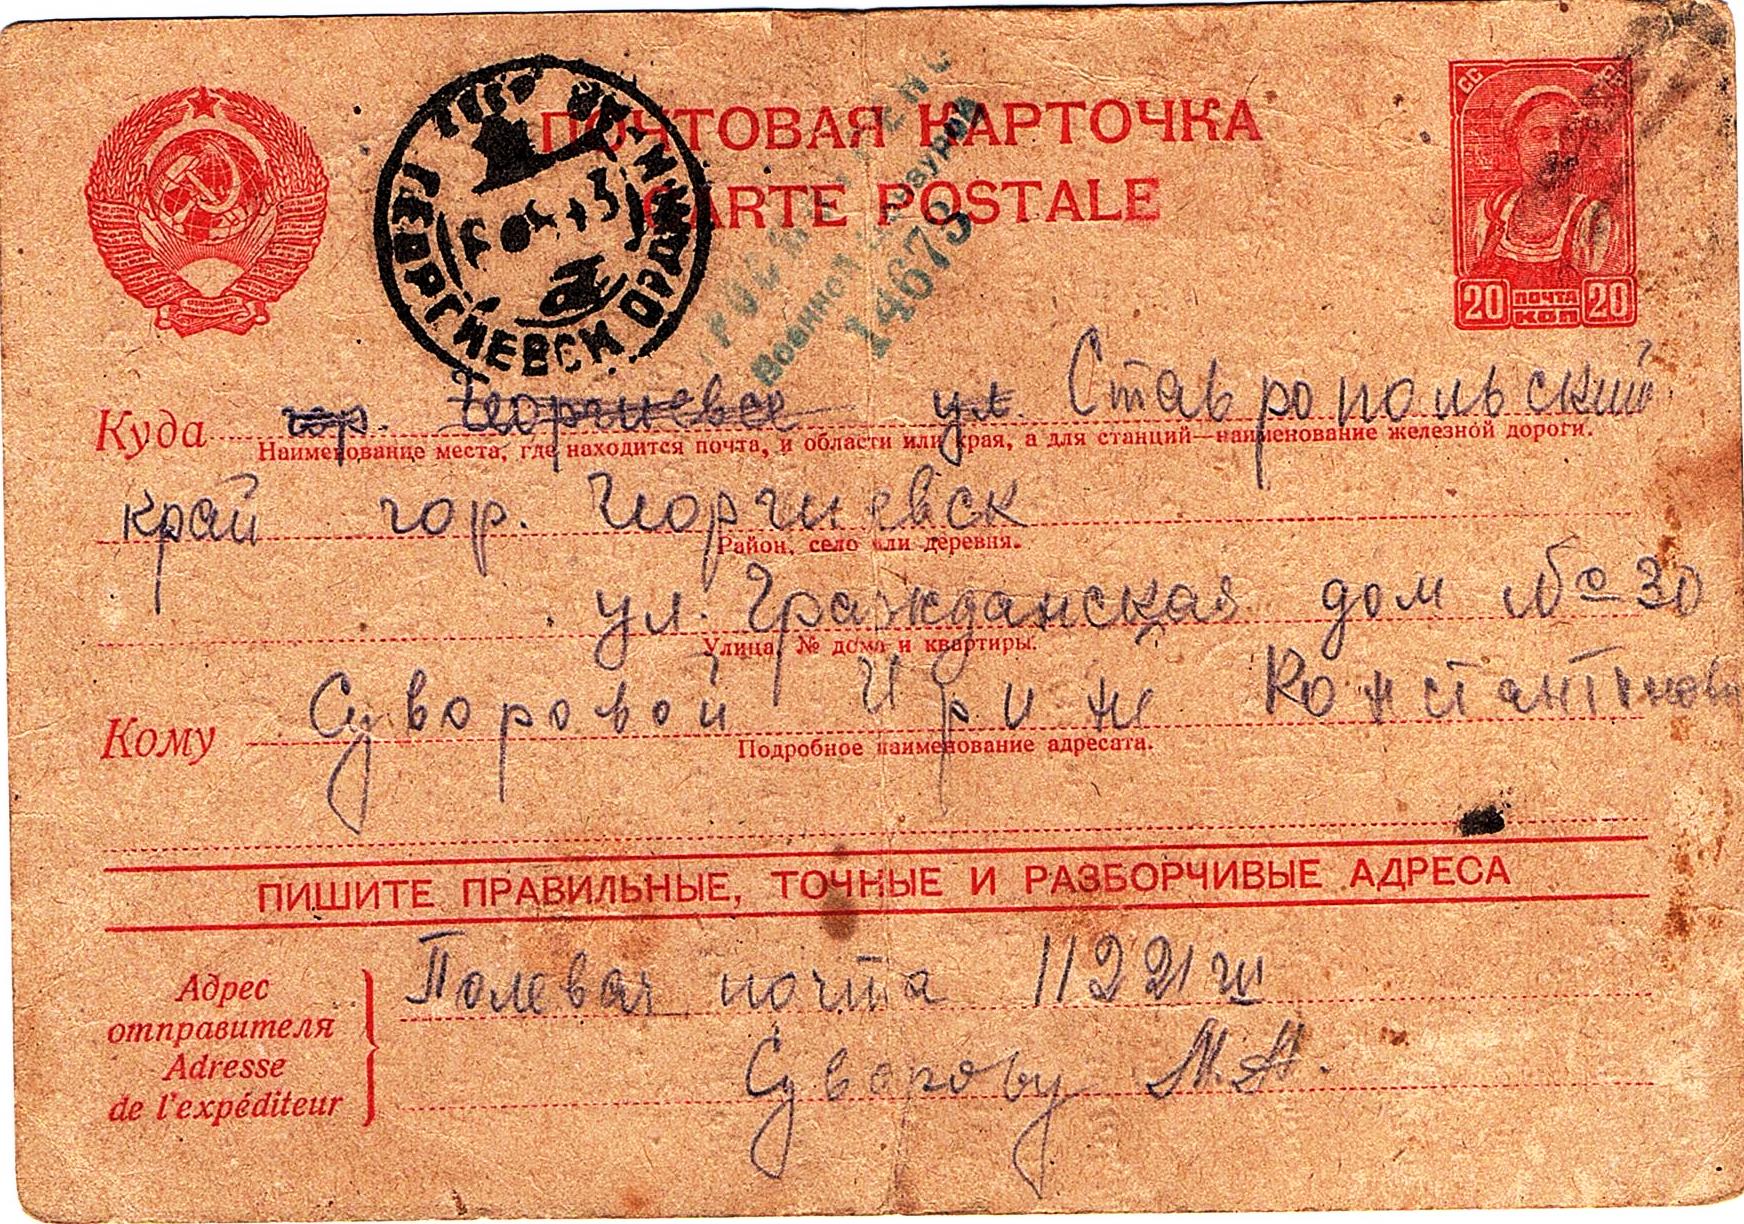 ПОЧТОВАЯ КАРТОЧКА
CARTE POSTALE
ГЕОРГИЕВСК ОРДЖ
Военной Цензурой
14673
СС СР
20 ПОЧТА 20
КОП
Куда гор. Георгиевск ул. Ставропольский
Наименование места, где находится почта, и области или края, а для станций—наименование железной дороги.
край гор. Георгиевск
Район, село или деревня.
ул. Гражданская дом № 30
Улица, № дома и квартиры.
Кому Суворовой Ирине Константинов
Подробное наименование адресата.
ПИШИТЕ ПРАВИЛЬНЫЕ, ТОЧНЫЕ И РАЗБОРЧИВЫЕ АДРЕСА
Адрес
отправителя
Adresse
de l'expéditeur
Полевая почта 11221 ш
Суворову М.А.